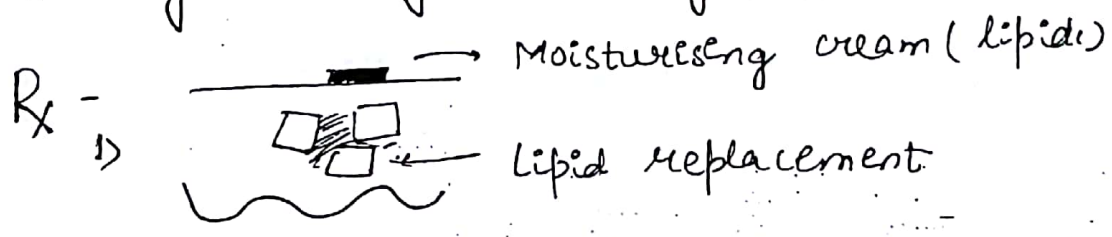 Moisturising cream (lipids)
Rx -
1)
Lipid replacement